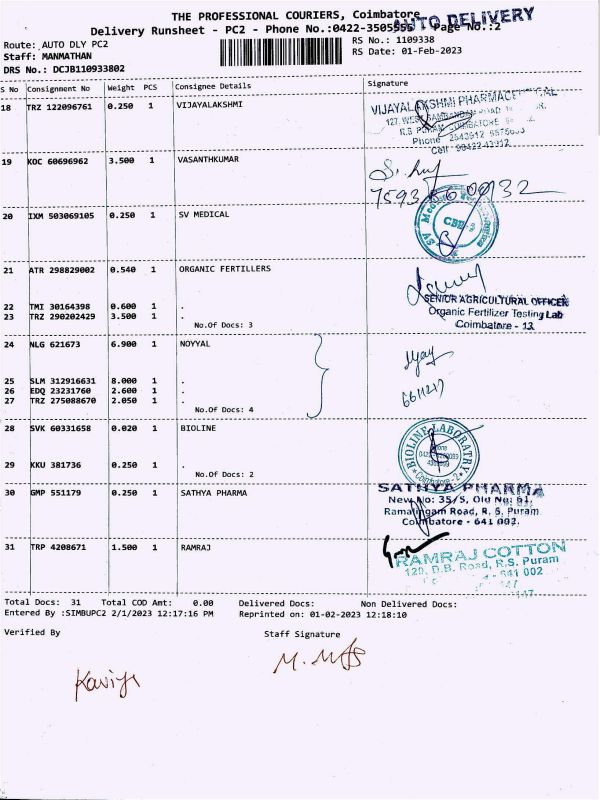 THE PROFESSIONAL COURIERS, Coimbatore
AUTO DELIVERY
Delivery Runsheet - PC2 - Phone No.:0422-3505555 Page No.:2
Route: AUTO DLY PC2
RS No.: 1109338
Staff: MANMATHAN
RS Date: 01-Feb-2023
DRS No.: DCJB110933802
S No Consignment No Weight PCS Consignee Details Signature
18 TRZ 122096761 0.250 1 VIJAYALAKSHMI
VIJAYALAKSHMI PHARMACEUTICAL
127, WEST SAMBANDAM ROAD
R.S PURAM, COIMBATORE
Phone 2543912
Cell 98422-43912
19 KOC 60696962 3.500 1 VASANTHKUMAR
20 IXM 503069105 0.250 1 SV MEDICAL
SV Medical
CBE
21 ATR 298829002 0.540 1 ORGANIC FERTILLERS
SENIOR AGRICULTURAL OFFICER
22 TMI 30164398 0.600 1 .
Organic Fertilizer Testing Lab
23 TRZ 290202429 3.500 1 .
Coimbatore - 13
No.Of Docs: 3
24 NLG 621673 6.900 1 NOYYAL
25 SLM 312916631 8.000 1 .
26 EDQ 23231760 2.600 1 .
27 TRZ 275088670 2.050 1 .
No.Of Docs: 4
28 SVK 60331658 0.020 1 BIOLINE
BIOLINE LABORATRY
Phone
Coimbatore - 2
29 KKU 381736 0.250 1 .
No.Of Docs: 2
30 GMP 551179 0.250 1 SATHYA PHARMA
SATHYA PHARMA
New No: 35/5, Old No: 61,
Ramalingam Road, R. S. Puram
Coimbatore - 641 002.
31 TRP 4208671 1.500 1 RAMRAJ
RAMRAJ COTTON
120, D.B. Road, R.S. Puram
- 641 002
Total Docs: 31 Total COD Amt: 0.00 Delivered Docs: Non Delivered Docs:
Entered By :SIMBUPC2 2/1/2023 12:17:16 PM Reprinted on: 01-02-2023 12:18:10
Verified By Staff Signature